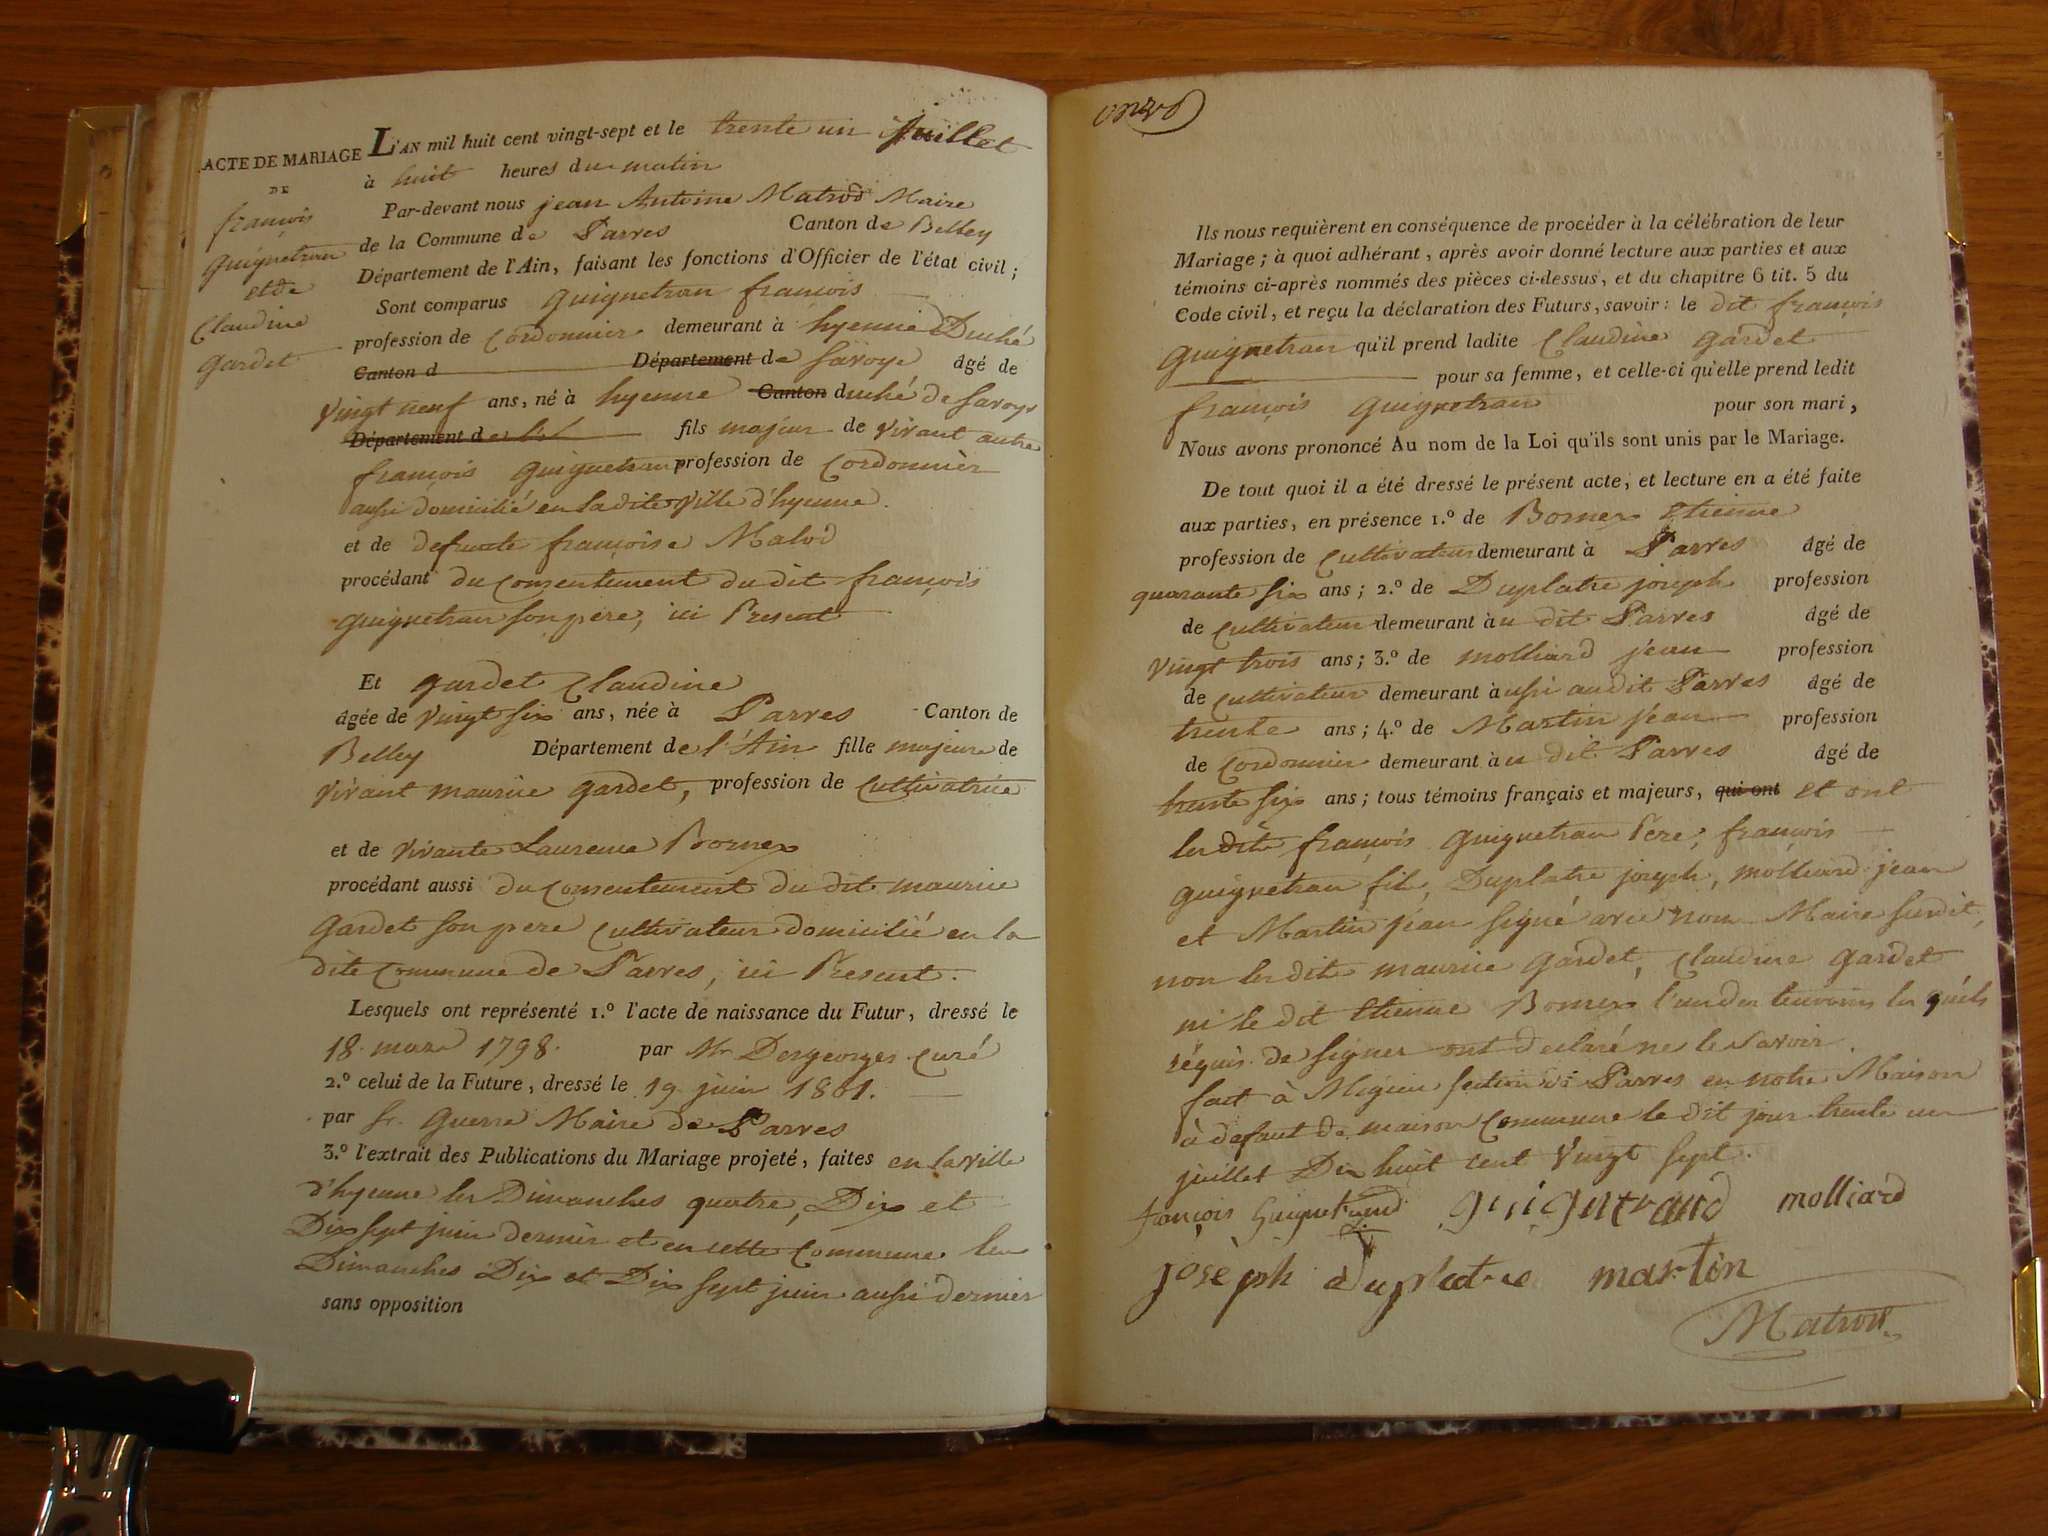 ACTE DE MARIAGE
DE
françois
guignetran
et de
Claudine
gardet
L'AN mil huit cent vingt-sept et le trente un Juillet
à huit heures du matin
Par-devant nous jean Antoine Matrod Maire
de la Commune de Parves Canton de Belley
Département de l'Ain, faisant les fonctions d'Officier de l'état civil;
Sont comparus guignetran françois
profession de Cordonnier demeurant à hyenne Duché
Canton d Département de Savoye âgé de
vingt neuf ans, né à hyenne Canton duché de Savoye
Département de fils majeur de vivant autre
françois guignetran profession de Cordonnier
aussi domicilié en la dite ville d'hyenne.
et de defunte françoise Malod
procédant du consentement du dit françois
guignetran son pere, ici Present
Et gardet Claudine
âgée de vingt six ans, née à Parves Canton de
Belley Département de l'Ain fille majeure de
vivant maurice gardet, profession de Cultivatrice
et de vivante Laurence Bornex
procédant aussi du consentement du dit maurice
gardet son pere cultivateur domicilié en la
dite Commune de Parves, ici Present.
Lesquels ont représenté 1.º l'acte de naissance du Futur, dressé le
18 mars 1798. par Mr Desgeorges Curé
2.º celui de la Future, dressé le 19 juin 1801.
par fr. Guerre Maire de Parves
3.º l'extrait des Publications du Mariage projeté, faites en la ville
d'hyenne les Dimanches quatre, Dix et
Dix sept juin dernier et en cette Commune les
Dimanches Dix et Dix sept juin aussi dernier
sans opposition
Ils nous requièrent en conséquence de procéder à la célébration de leur
Mariage; à quoi adhérant, après avoir donné lecture aux parties et aux
témoins ci-après nommés des pièces ci-dessus, et du chapitre 6 tit. 5 du
Code civil, et reçu la déclaration des Futurs, savoir: le dit françois
guignetran qu'il prend ladite Claudine gardet
pour sa femme, et celle-ci qu'elle prend ledit
françois guignetran pour son mari,
Nous avons prononcé Au nom de la Loi qu'ils sont unis par le Mariage.
De tout quoi il a été dressé le présent acte, et lecture en a été faite
aux parties, en présence 1.º de Bornex Etienne
profession de cultivateur demeurant à Parves âgé de
quarante six ans; 2.º de Duplatre joseph profession
de cultivateur demeurant au dit Parves âgé de
vingt trois ans; 3.º de molliard jean profession
de cultivateur demeurant aussi audit Parves âgé de
trente ans; 4.º de Martin jean profession
de Cordonnier demeurant au dit Parves âgé de
trente six ans; tous témoins français et majeurs, qui ont et ont
les dits françois guignetran Pere, françois
guignetran fils, Duplatre joseph, molliard jean
et Martin jean signé avec nous Maire susdit,
non les dits maurice gardet, Claudine gardet
ni le dit Etienne Bornex l'un des temoins les quels
réquis de signer ont declaré ne le savoir.
fait à Megieu section de Parves en notre Maison
à defaut de maison Commune le dit jour trente un
juillet Dix huit cent vingt sept.
françois Guignetrand guignetrand molliard
joseph duplatre martin
Matrod